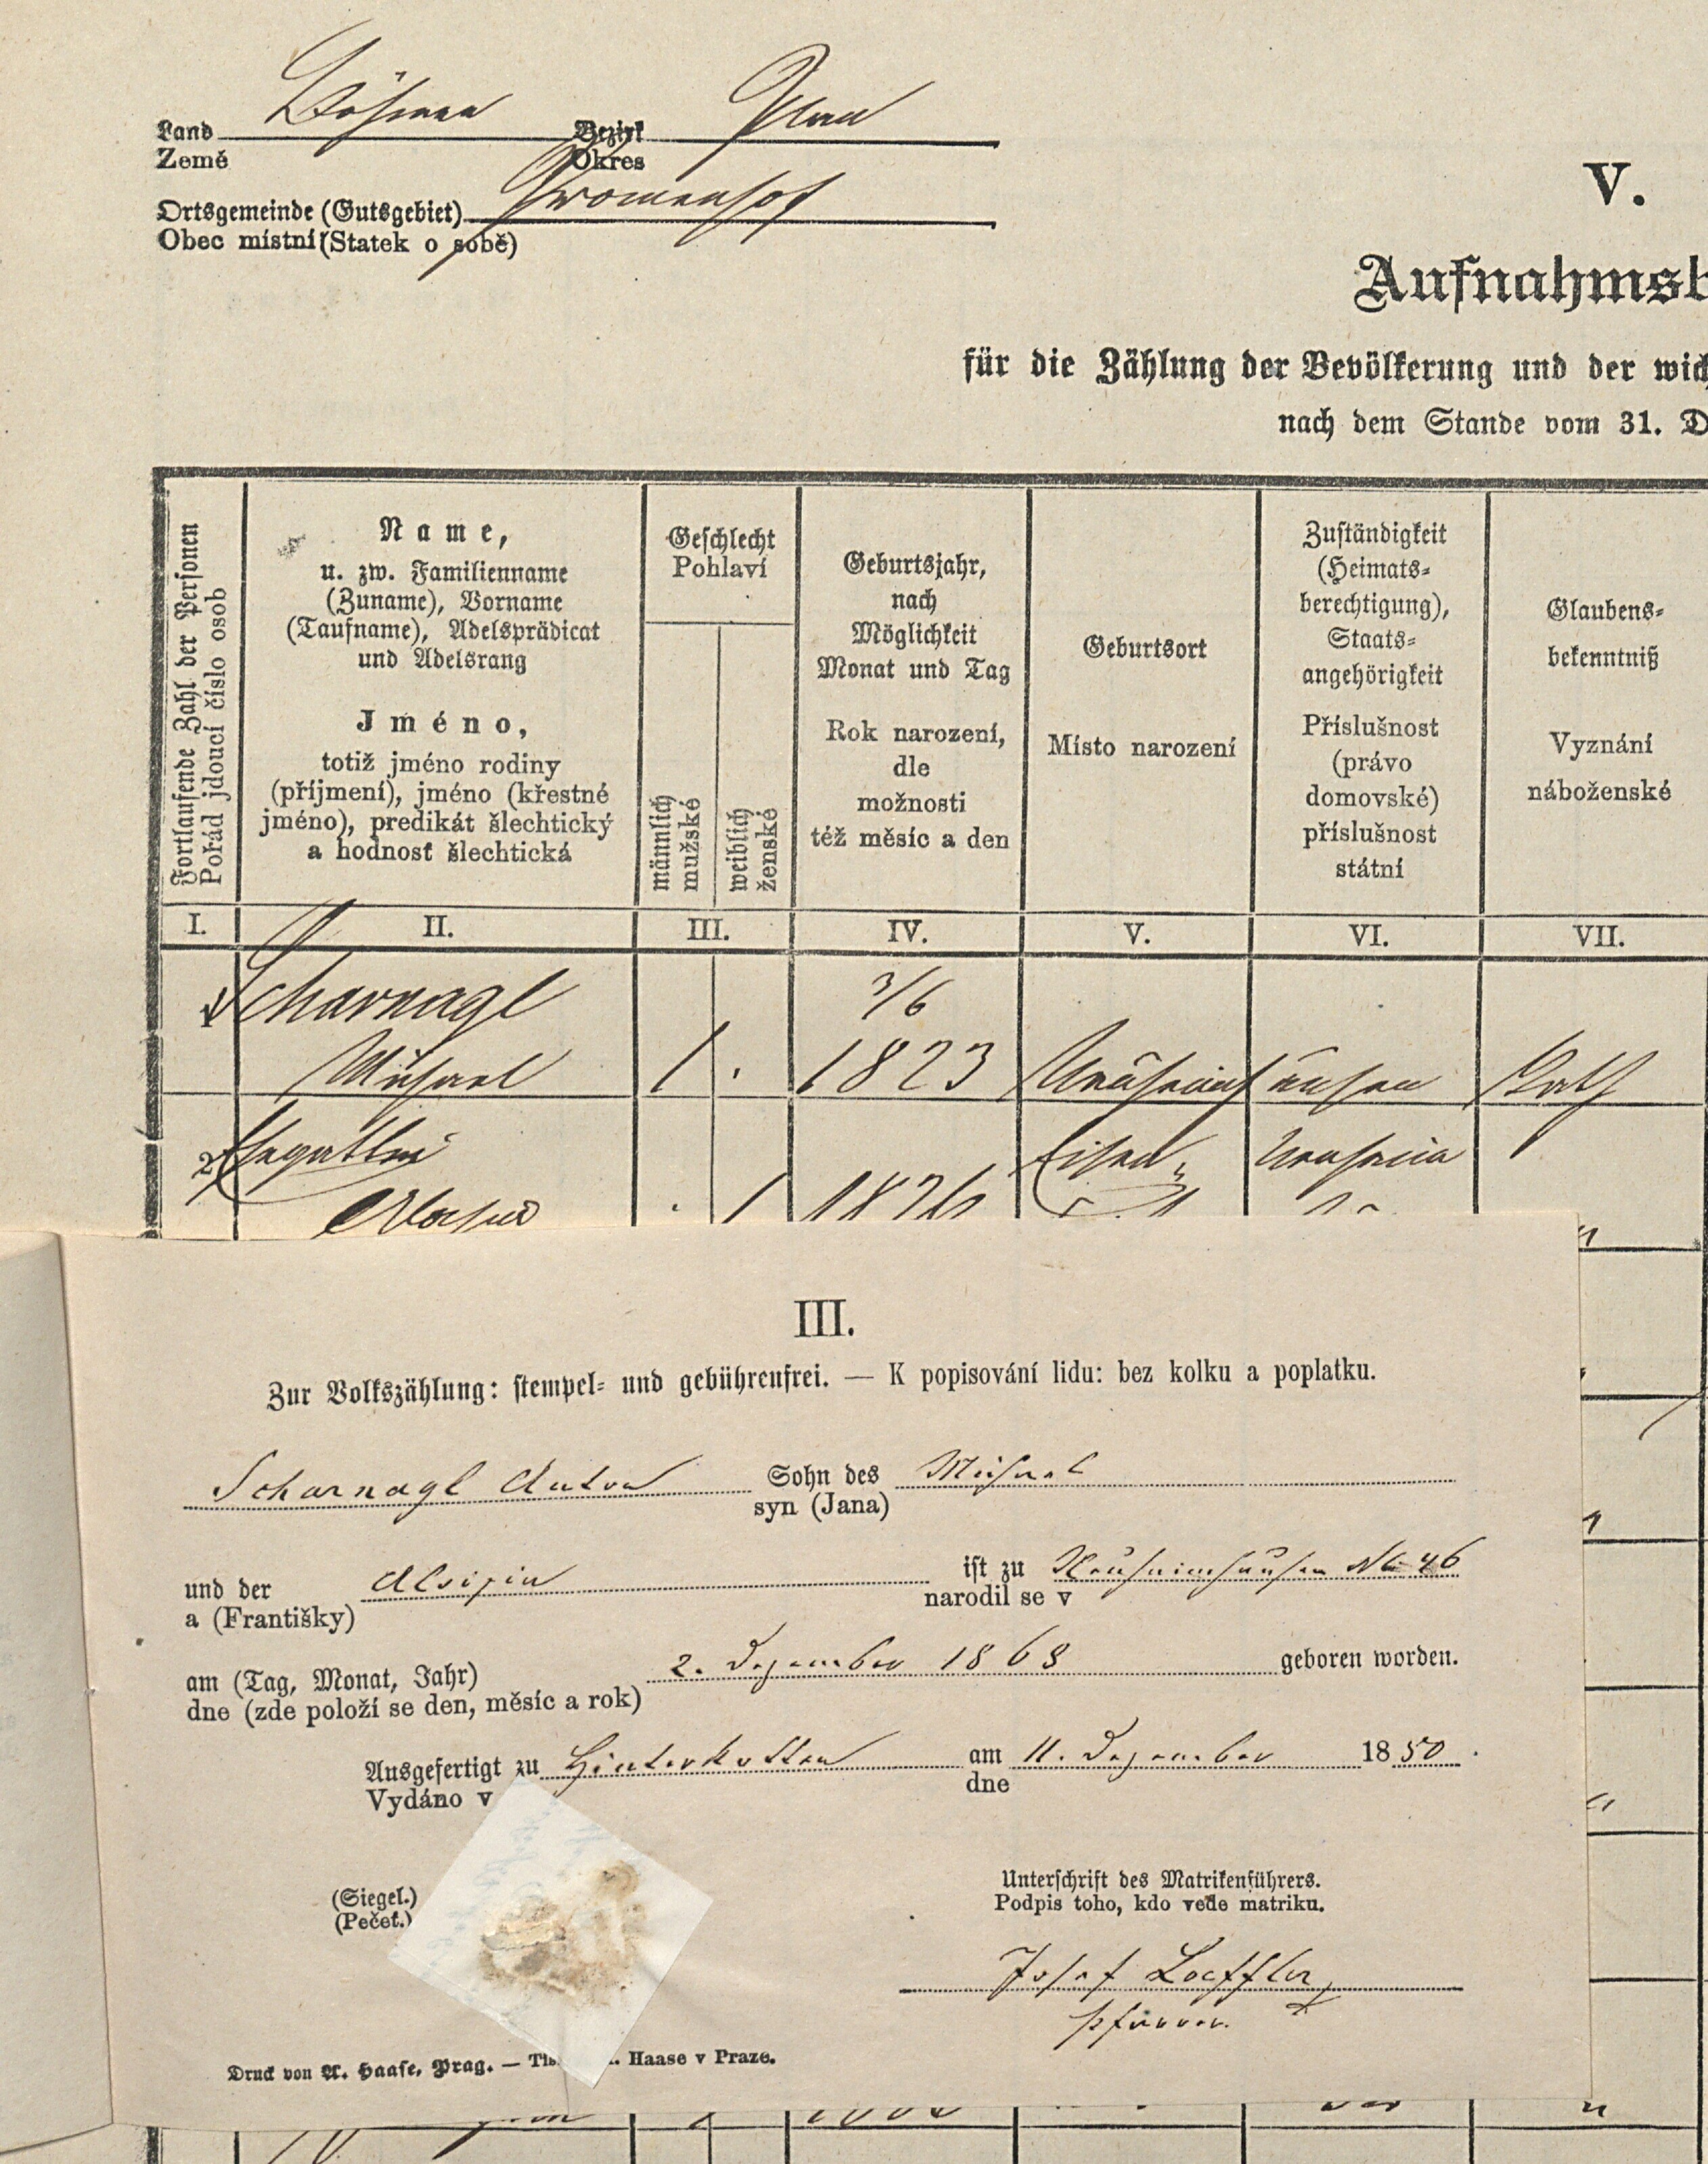 Land Böhmen Bezirk Plan
Země Okres
Ortsgemeinde (Gutsgebiet) Promenhof
Obec místní (Statek o sobě)
V.
Aufnahmsb
für die Zählung der Bevölkerung und der wich
nach dem Stande vom 31. D
Fortlaufende Zahl der Personen
Pořád jdoucí číslo osob
Name,
u. zw. Familienname
(Zuname), Vorname
(Taufname), Adelsprädicat
und Adelsrang
Jméno,
totiž jméno rodiny
(příjmení), jméno (křestné
jméno), predikát šlechtický
a hodnost šlechtická
Geschlecht
Pohlaví
männlich
mužské
weiblich
ženské
Geburtsjahr,
nach
Möglichkeit
Monat und Tag
Rok narození,
dle
možnosti
též měsíc a den
Geburtsort
Místo narození
Zuständigkeit
(Heimats-
berechtigung),
Staats-
angehörigkeit
Příslušnost
(právo
domovské)
příslušnost
státní
Glaubens-
bekenntniß
Vyznání
náboženské
I. II. III. IV. V. VI. VII.
1 Scharnagl 3/6
Michael 1 . 1823 Kath
2
. 1 1826
III.
Zur Volkszählung: stempel- und gebührenfrei. — K popisování lidu: bez kolku a poplatku.
Scharnagl Anton Sohn des Michael
syn (Jana)
und der Aloisia ist zu No 46
a (Františky) narodil se v
am (Tag, Monat, Jahr) 2. Dezember 1868 geboren worden.
dne (zde položí se den, měsíc a rok)
Ausgefertigt zu Hinterkotten am 11. Dezember 1880.
Vydáno v dne
(Siegel.)
(Pečet.)
Unterschrift des Matrikenführers.
Podpis toho, kdo vede matriku.
Josef Loeffler
Pfarrer
Druck von A. Haase, Prag. — Tis . Haase v Praze.